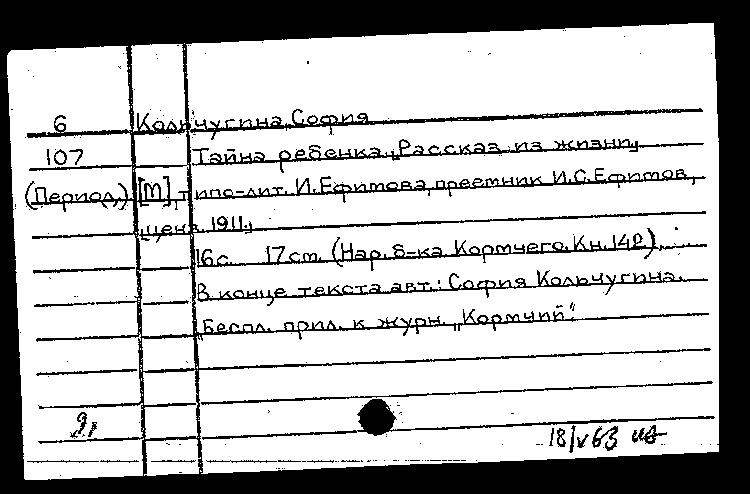 6 Кольчугина, София
107 Тайна ребенка. „Рассказ из жизни„
(Период.) [М], типо-лит. И. Ефимова, преемник И.С. Ефимов,
ценз. 1911.
16с. 17см. (Нар. б-ка Кормчего. Кн. 142).
В конце текста авт.: София Кольчугина.
Беспл. прил. к журн. „Кормчий“.
18/V 63